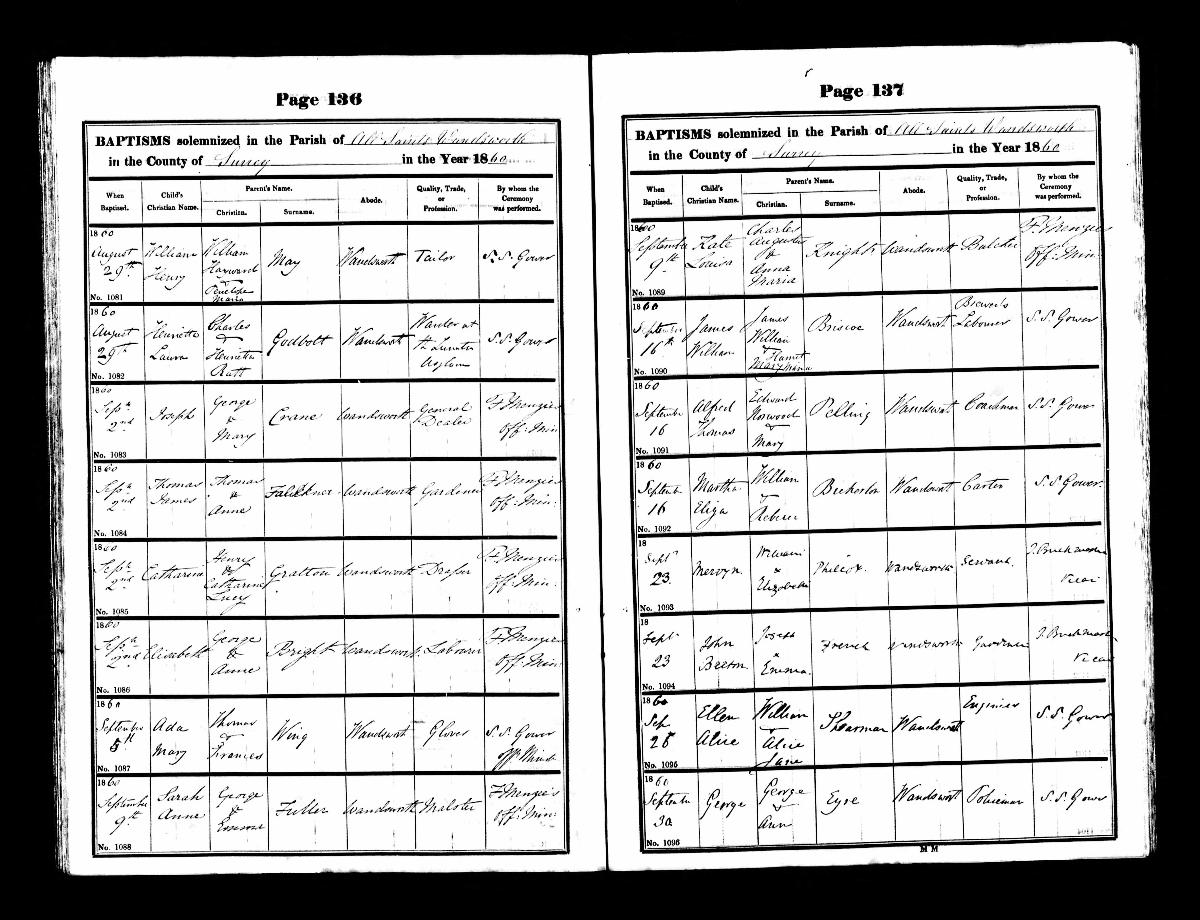 Page 136
BAPTISMS solemnized in the Parish of All Saints Wandsworth
in the County of Surrey in the Year 1860
When Baptised. Child's Christian Name. Parent's Name. Christian. Surname. Abode. Quality, Trade, or Profession. By whom the Ceremony was performed.
1860
August 29th William Henry William Harward & Penelope Maria May Wandsworth Tailor S.S. Gower
No. 1081
1860
August 29th Henrietta Laura Charles & Henrietta Godbolt Wandsworth at Lunatic Asylum S.S. Gower
No. 1082
1860
Septr 2nd Joseph George & Mary Crane Wandsworth General Dealer F Menzies Off: Min:
No. 1083
1860
Septr 2nd Thomas James Thomas & Anne Faulkner Wandsworth Gardener F Menzies Off: Min:
No. 1084
1860
Septr 2nd Catharine Henry & Catharine Lucy Gratton Wandsworth Draper F Menzies Off: Min:
No. 1085
1860
Septr 2nd Elizabeth George & Anne Bright Wandsworth Labourer F Menzies Off: Min:
No. 1086
1860
September 5th Ada Mary Thomas & Frances Wing Wandsworth Glover S.S. Gower
No. 1087
1860
September 9th Sarah Anne George & Emma Fuller Wandsworth Malster F Menzies Off: Min:
No. 1088
Page 137
BAPTISMS solemnized in the Parish of All Saints Wandsworth
in the County of Surrey in the Year 1860
When Baptised. Child's Christian Name. Parent's Name. Christian. Surname. Abode. Quality, Trade, or Profession. By whom the Ceremony was performed.
1860
September 9th Kate Louisa Charles Augustus & Anna Maria Knight Wandsworth Butcher F Menzies Off: Min:
No. 1089
1860
September 16th James William James William & Mary Maria Briscoe Wandsworth Labourer S.S. Gower
No. 1090
1860
September 16 Alfred Thomas Edward Norwood & Mary Pelling Wandsworth Coachman S.S. Gower
No. 1091
1860
September 16 Martha Eliza William & Bickerton Wandsworth Carter S.S. Gower
No. 1092
18
Septr 23 Mervyn William & Elizabeth Philcox Wandsworth Servant Vicar
No. 1093
18
Septr 23 John Beeton Joseph & Emma French Wandsworth Gardener Vicar
No. 1094
1860
Sep 26 Ellen Alice William & Alice Jane Shearman Wandsworth Engineer S.S. Gower
No. 1095
1860
September 30 George George & Ann Eyre Wandsworth Policeman S.S. Gower
No. 1096
M M